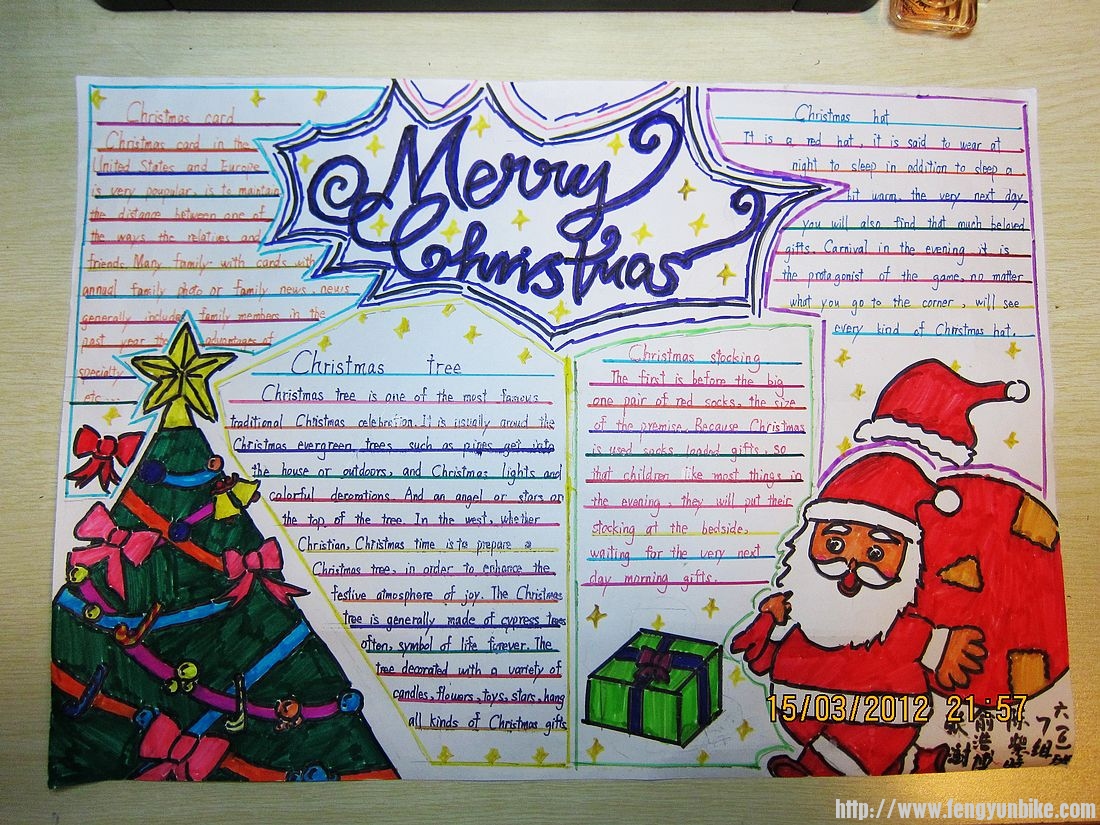 Merry
Christmas
Christmas card
Christmas card in the
United States and Europe
is very poupular, is to maintain
the distance between one of
the ways the relatives and
friends. Many family with cards with
annual family photo or family news, news
generally includes family members in the
past year the advantages of
specialty
etc...
Christmas tree
Christmas tree is one of the most famous
traditional Christmas celebration. It is usually around the
Christmas evergreen trees such as pines get into
the house or outdoors, and Christmas lights and
colorful decorations. And an angel or stars or
the top of the tree. In the west, whether
Christian, Christmas time is to prepare a
Christmas tree, in order to enhance the
festive atmosphere of joy. The Christmas
tree is generally made of cypress trees
often, symbol of life furever. The
tree decorated with a variety of
candles, flowers, toys, stars, hang
all kinds of Christmas gifts
Christmas stocking
The first is before the big
one pair of red socks, the size
of the premise. Because Christmas
is used socks loaded gifts, so
that children like most things in
the evening, they will put their
stocking at the bedside,
waiting for the very next
day morning gifts.
Christmas hat
It is a red hat, it is said to wear at
night to sleep in addition to sleep a
bit warm, the very next day
you will also find that much beloved
gifts. Carnival in the evening it is
the protagonist of the game, no matter
what you go to the corner, will see
every kind of Christmas hat.
15/03/2012 21:57
六
7组
http://www.fengyunbike.com